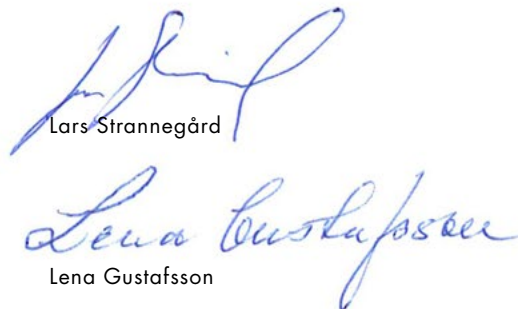 Lars Strannegård
Lena Gustafsson
Lena Gustafsson